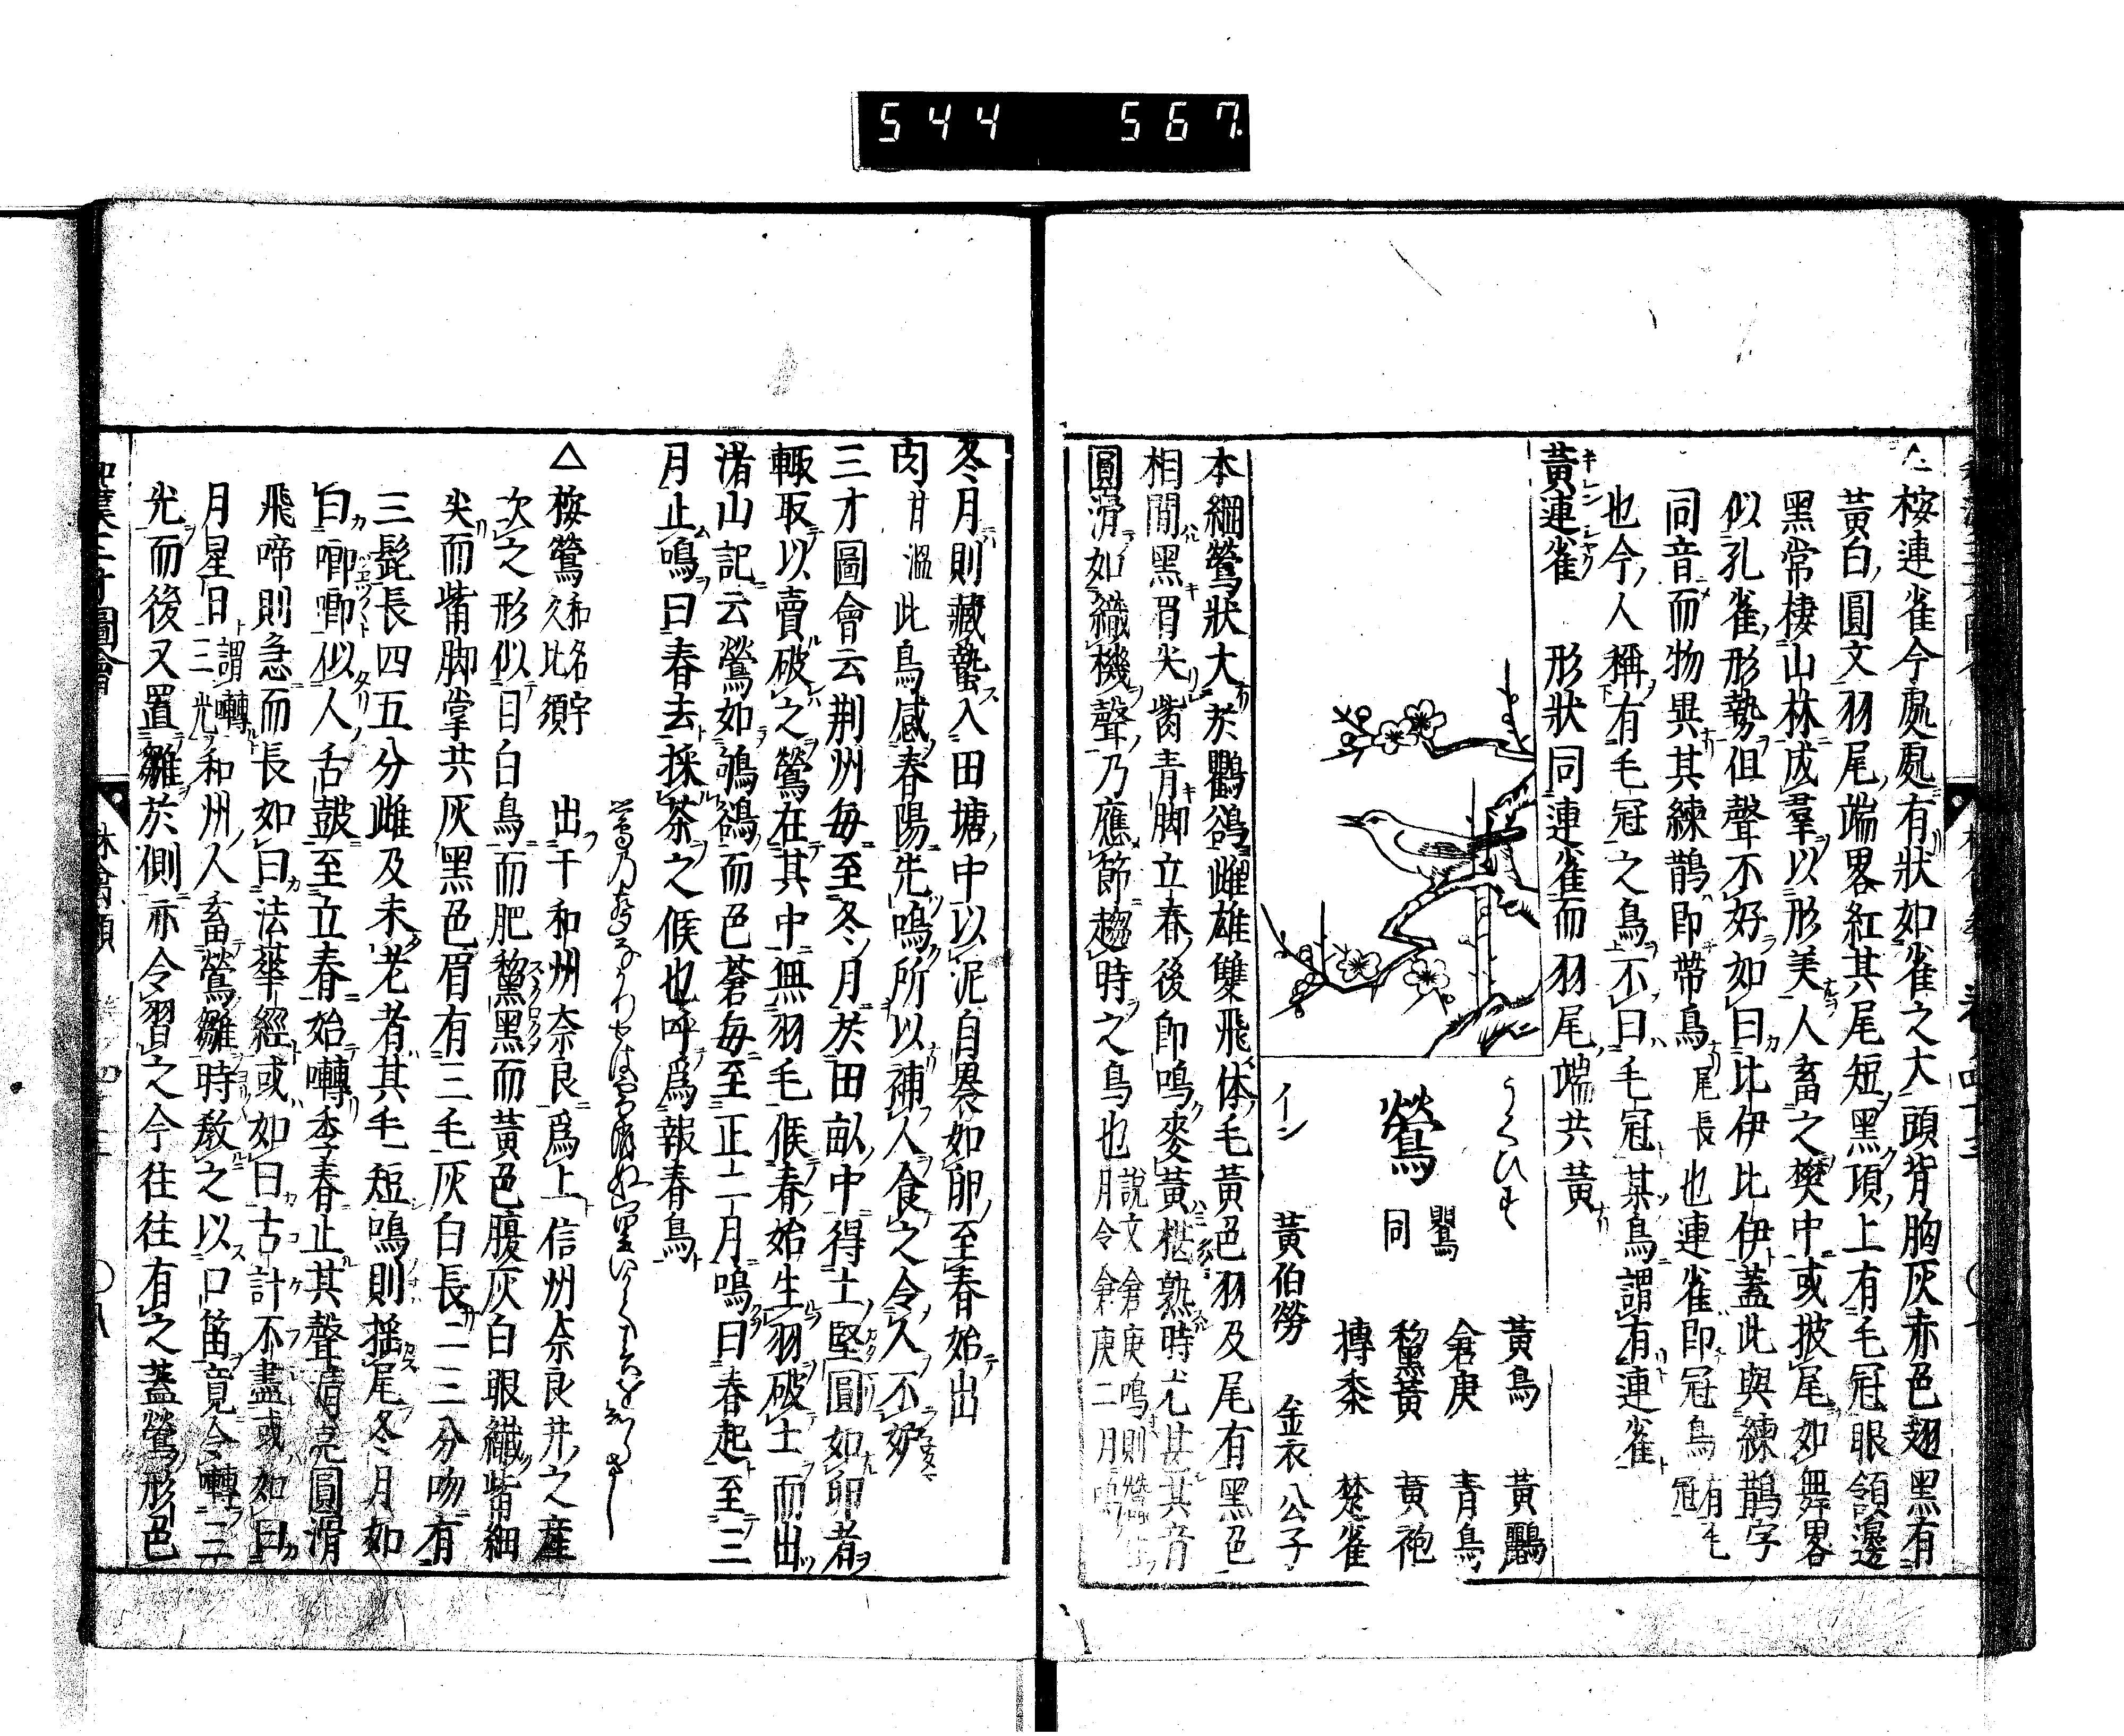 544 567
△桉連雀今處處有狀如雀之大頭背胸灰赤色翅黑有
黃白圓文羽尾端畧紅其尾短黑項上有毛冠眼頷邊
黑常棲山林成羣以形美人畜之樊中或披尾如舞畧
似孔雀形勢但聲不好如曰比伊比伊蓋此與練鵲字
同音而物異其練鵲卽帶鳥尾長也連雀卽冠鳥有毛冠
也今人稱有毛冠之鳥不曰毛冠某鳥謂有連雀
黃連雀 形狀同連雀而羽尾端共黃
うぐひす
鶯
鸎同
イーン
黃鳥 黃鸝
倉庚 青鳥
黧黃 黃袍
搏黍 楚雀
黃伯勞 金衣公子
本綱鶯狀大於鸜鵒雌雄雙飛体毛黃色羽及尾有黑色
相間黑眉尖觜青脚立春後卽鳴麥黃椹熟時尤甚其音
圓滑如織機聲乃應節趨時之鳥也說文倉庚鳴則蠶生月令倉庚二月鳴
冬月則藏蟄入田塘中以泥自裹如卵至春始出
肉甘溫此鳥感春陽先鳴所以補人食之令人不妒
三才圖會云荆州每至冬月於田畝中得土堅圓如卵者
輙取以賣破之鶯在其中無羽毛候春始生羽破土而出
渚山記云鶯如鴝鵒而色蒼每至正二月鳴曰春起至三
月止鳴曰春去採茶之候也呼爲報春鳥
△桉鶯和名宇久比須 出于和州奈良爲上信州奈良井之産
次之形似目白鳥而肥黧黑而黃色腹灰白眼纖觜細
尖而觜脚掌共灰黑色眉有三毛灰白長二三分吻有
三髭長四五分雌及未老者其毛短鳴則搖尾冬月如
曰唧唧似人舌皷至立春始囀季春止其聲清亮圓滑
飛啼則急而長如曰法華經或如曰古計不盡或如曰
月星日謂囀三光和州人畜鶯雛時教之以口笛竟令囀三
光而後又置雛於側亦令習之今往往有之蓋鶯形色
和漢三才圖會 林禽類